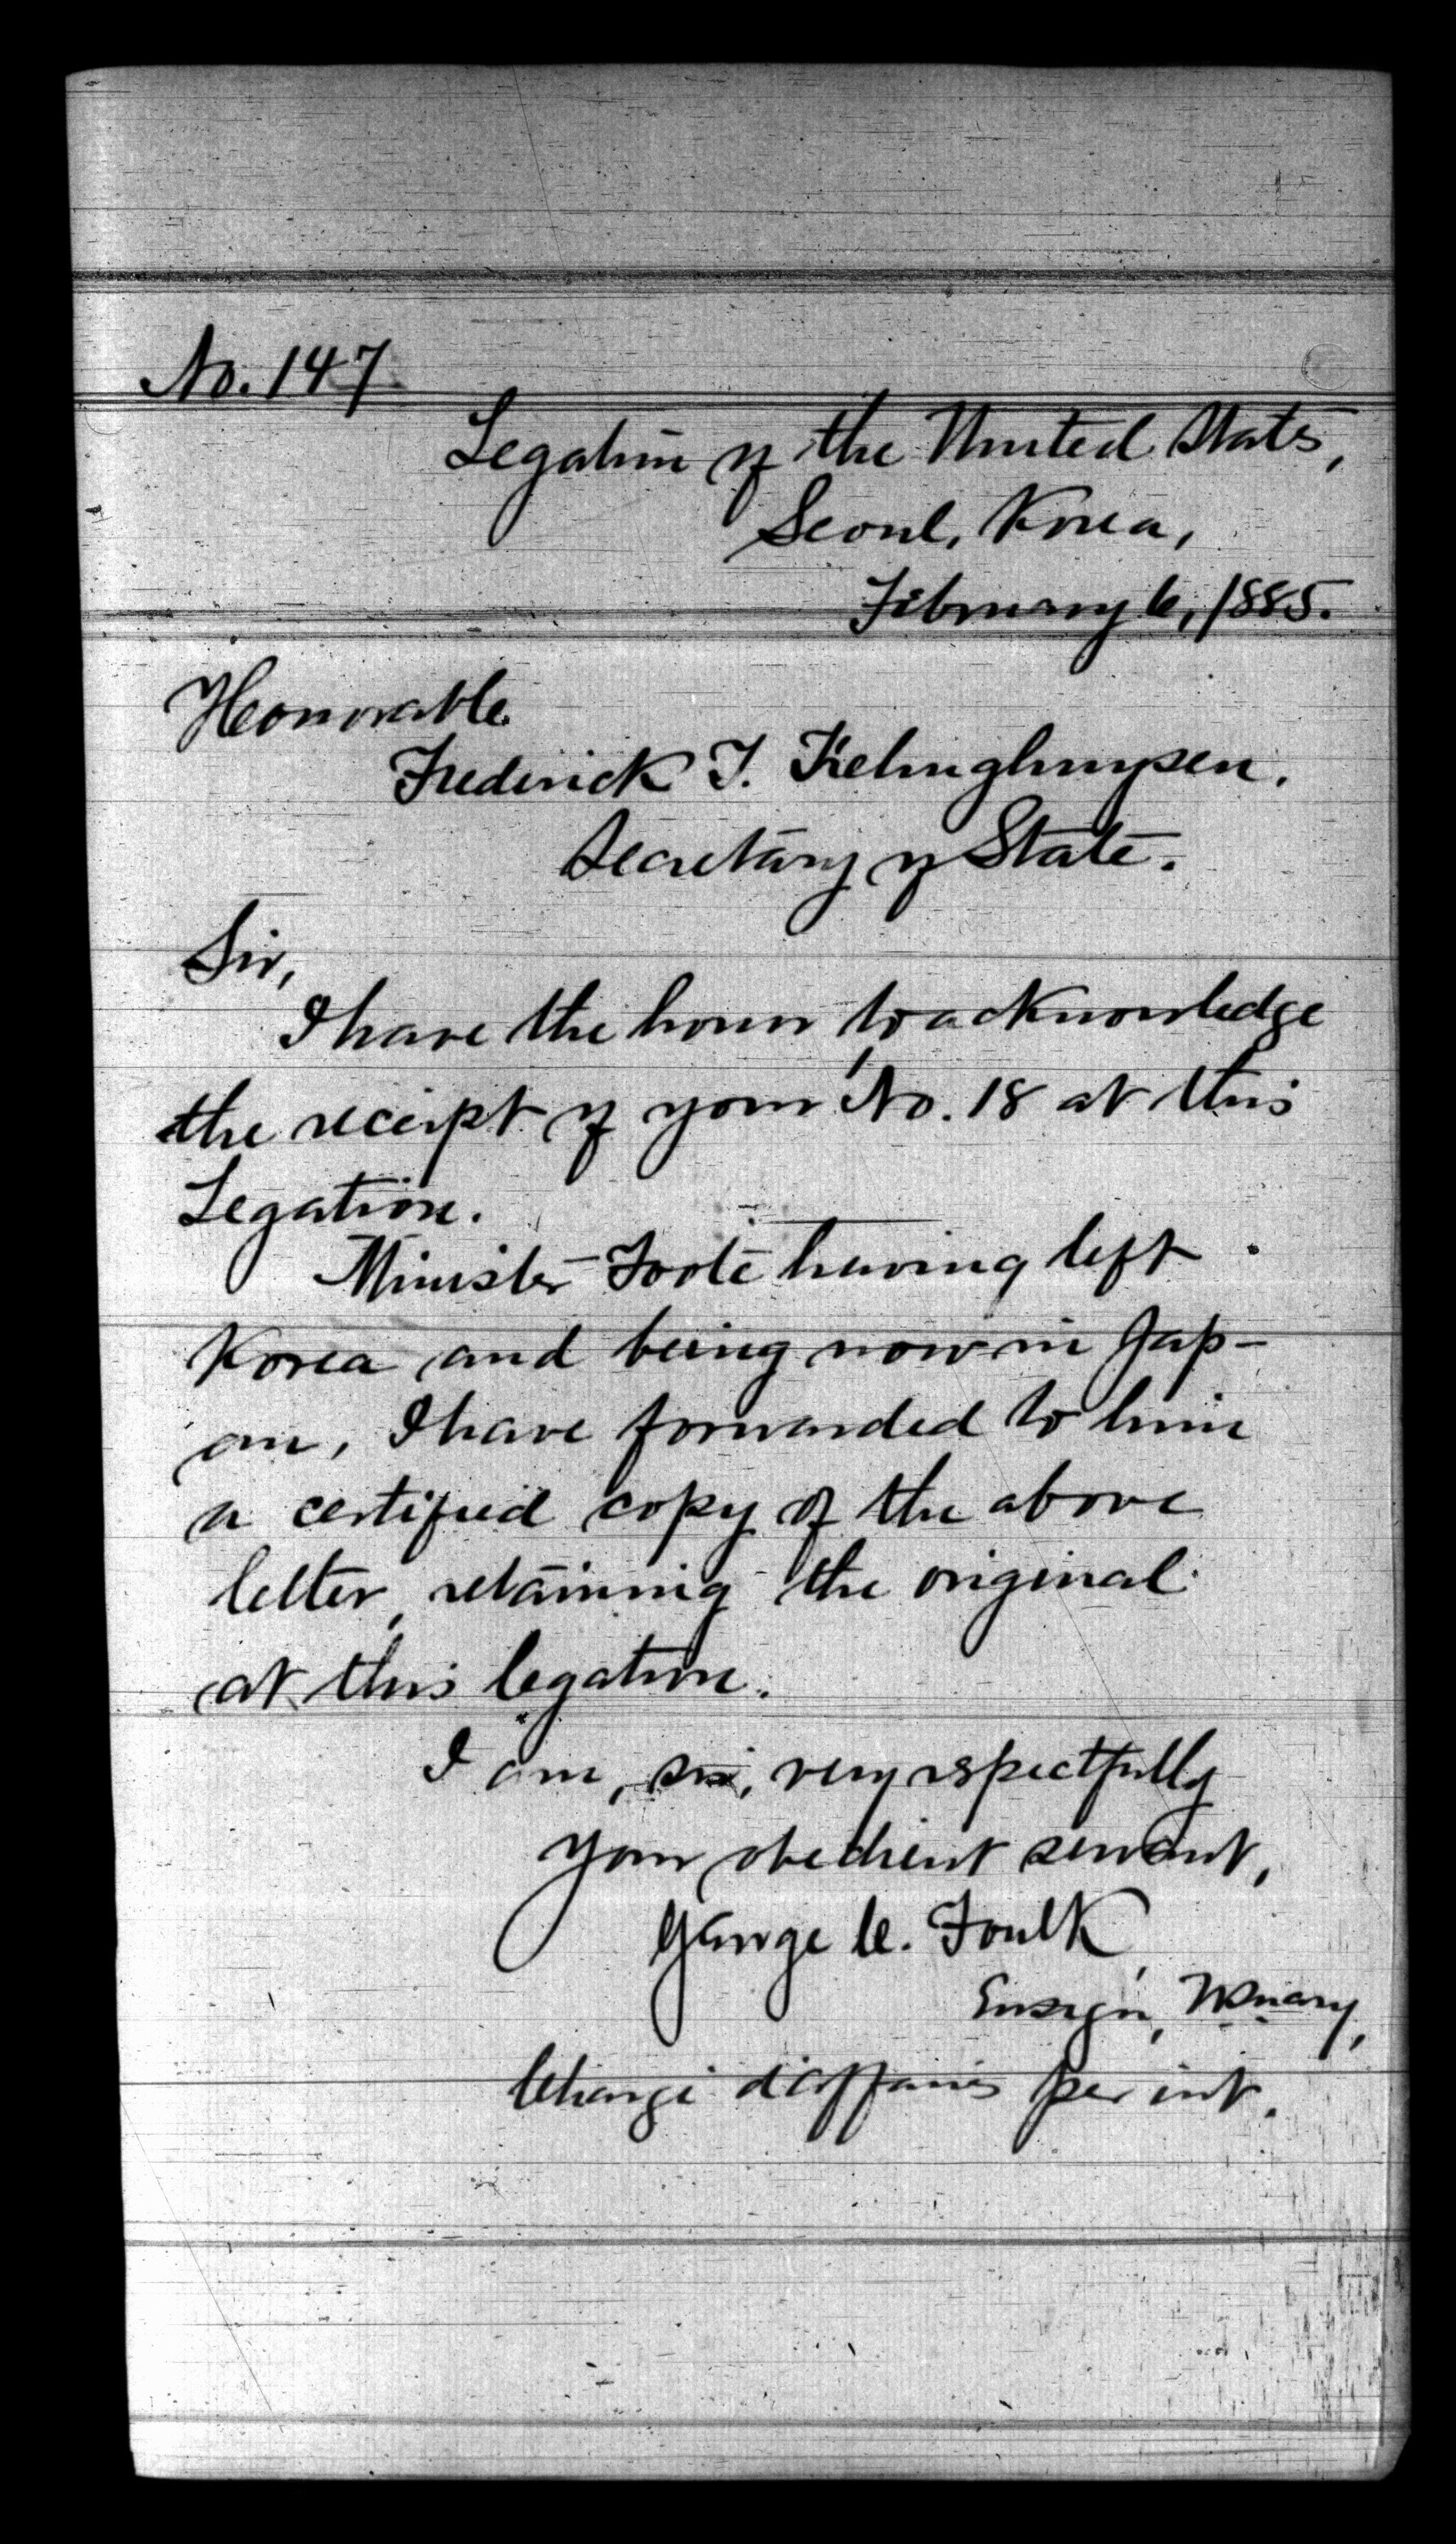 No. 147
Legation of the United States,
Seoul, Korea,
February 6, 1885.
Honorable
Frederick T. Frelinghuysen,
Secretary of State.
Sir,
I have the honor to acknowledge
the receipt of your No. 18 at this
Legation.
Minister Foote having left
Korea and being now in Jap-
an, I have forwarded to him
a certified copy of the above
letter, retaining the original
at this legation.
I am, sir, very respectfully
your obedient servant,
George C. Foulk
Ensign, Navy,
Chargé d'affaires per int.